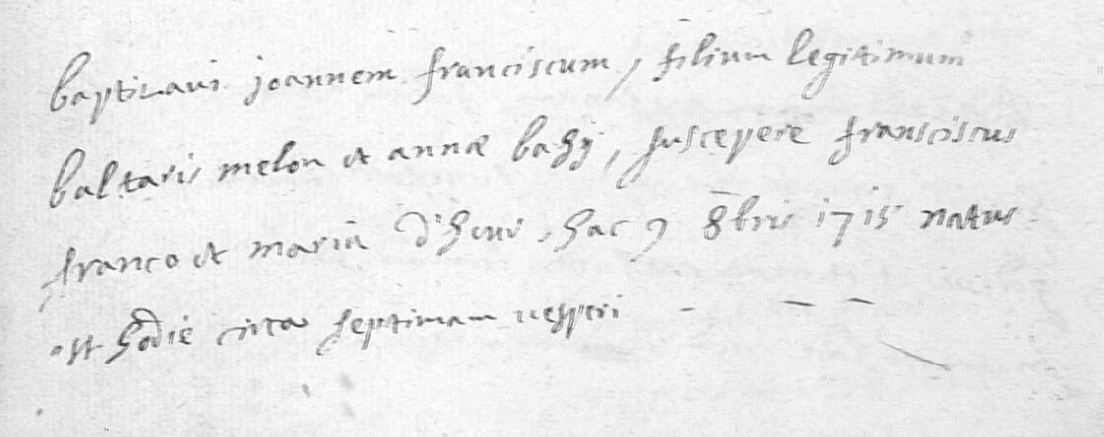 baptizavi joannem franciscum, filium legitimum
baltazis melon et annæ bahy, suscepere franciscus
franco et maria d'heur, hac 9 8bris 1715 natus
est hodie circa septimam vesperi - - -